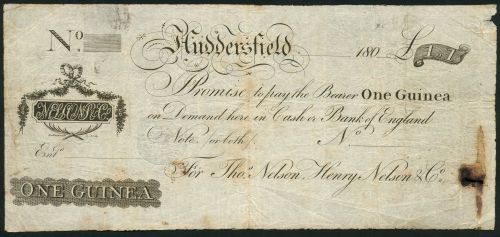 No.
Huddersfield 180 £ 1 1
Promise to pay the Bearer One Guinea
on Demand here in Cash or Bank of England
Note for both No.
NELSONS & Co.
Entd.
For Thos. Nelson, Henry Nelson & Co.
ONE GUINEA